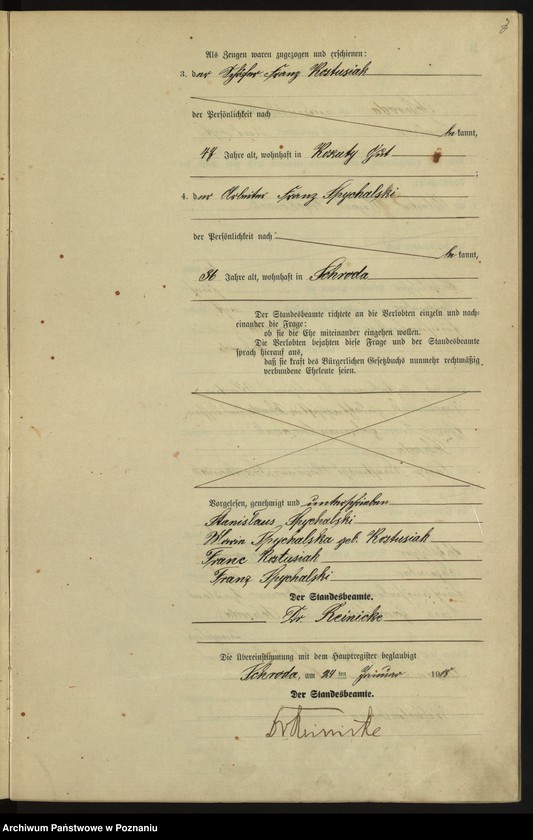 Als Zeugen waren zugezogen und erschienen:
3. der Schäfer Franz Kostusiak
der Persönlichkeit nach
bekannt,
47 Jahre alt, wohnhaft in Gut
4. der Arbeiter Franz Spychalski
der Persönlichkeit nach
bekannt,
36 Jahre alt, wohnhaft in Schroda
Der Standesbeamte richtete an die Verlobten einzeln und nach-
einander die Frage:
ob sie die Ehe miteinander eingehen wollen.
Die Verlobten bejahten diese Frage und der Standesbeamte
sprach hierauf aus,
daß sie kraft des Bürgerlichen Gesetzbuchs nunmehr rechtmäßig
verbundene Eheleute seien.
Vorgelesen, genehmigt und unterschrieben
Stanislaus Spychalski
Maria Spychalska geb. Kostusiak
Franc Kostusiak
Franz Spychalski
Der Standesbeamte.
Dr Reinicke
Die Übereinstimmung mit dem Hauptregister beglaubigt
Schroda, am 24 ten Januar
Der Standesbeamte.
Dr Reinicke
Archiwum Państwowe w Poznaniu